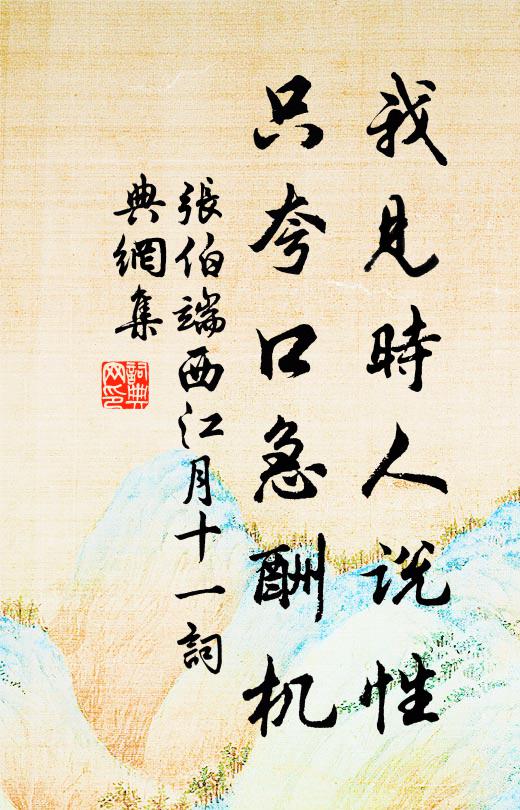 我見時人説性
只夸口急酬机
張伯端西江月十一詞
典網集
詞典
网印